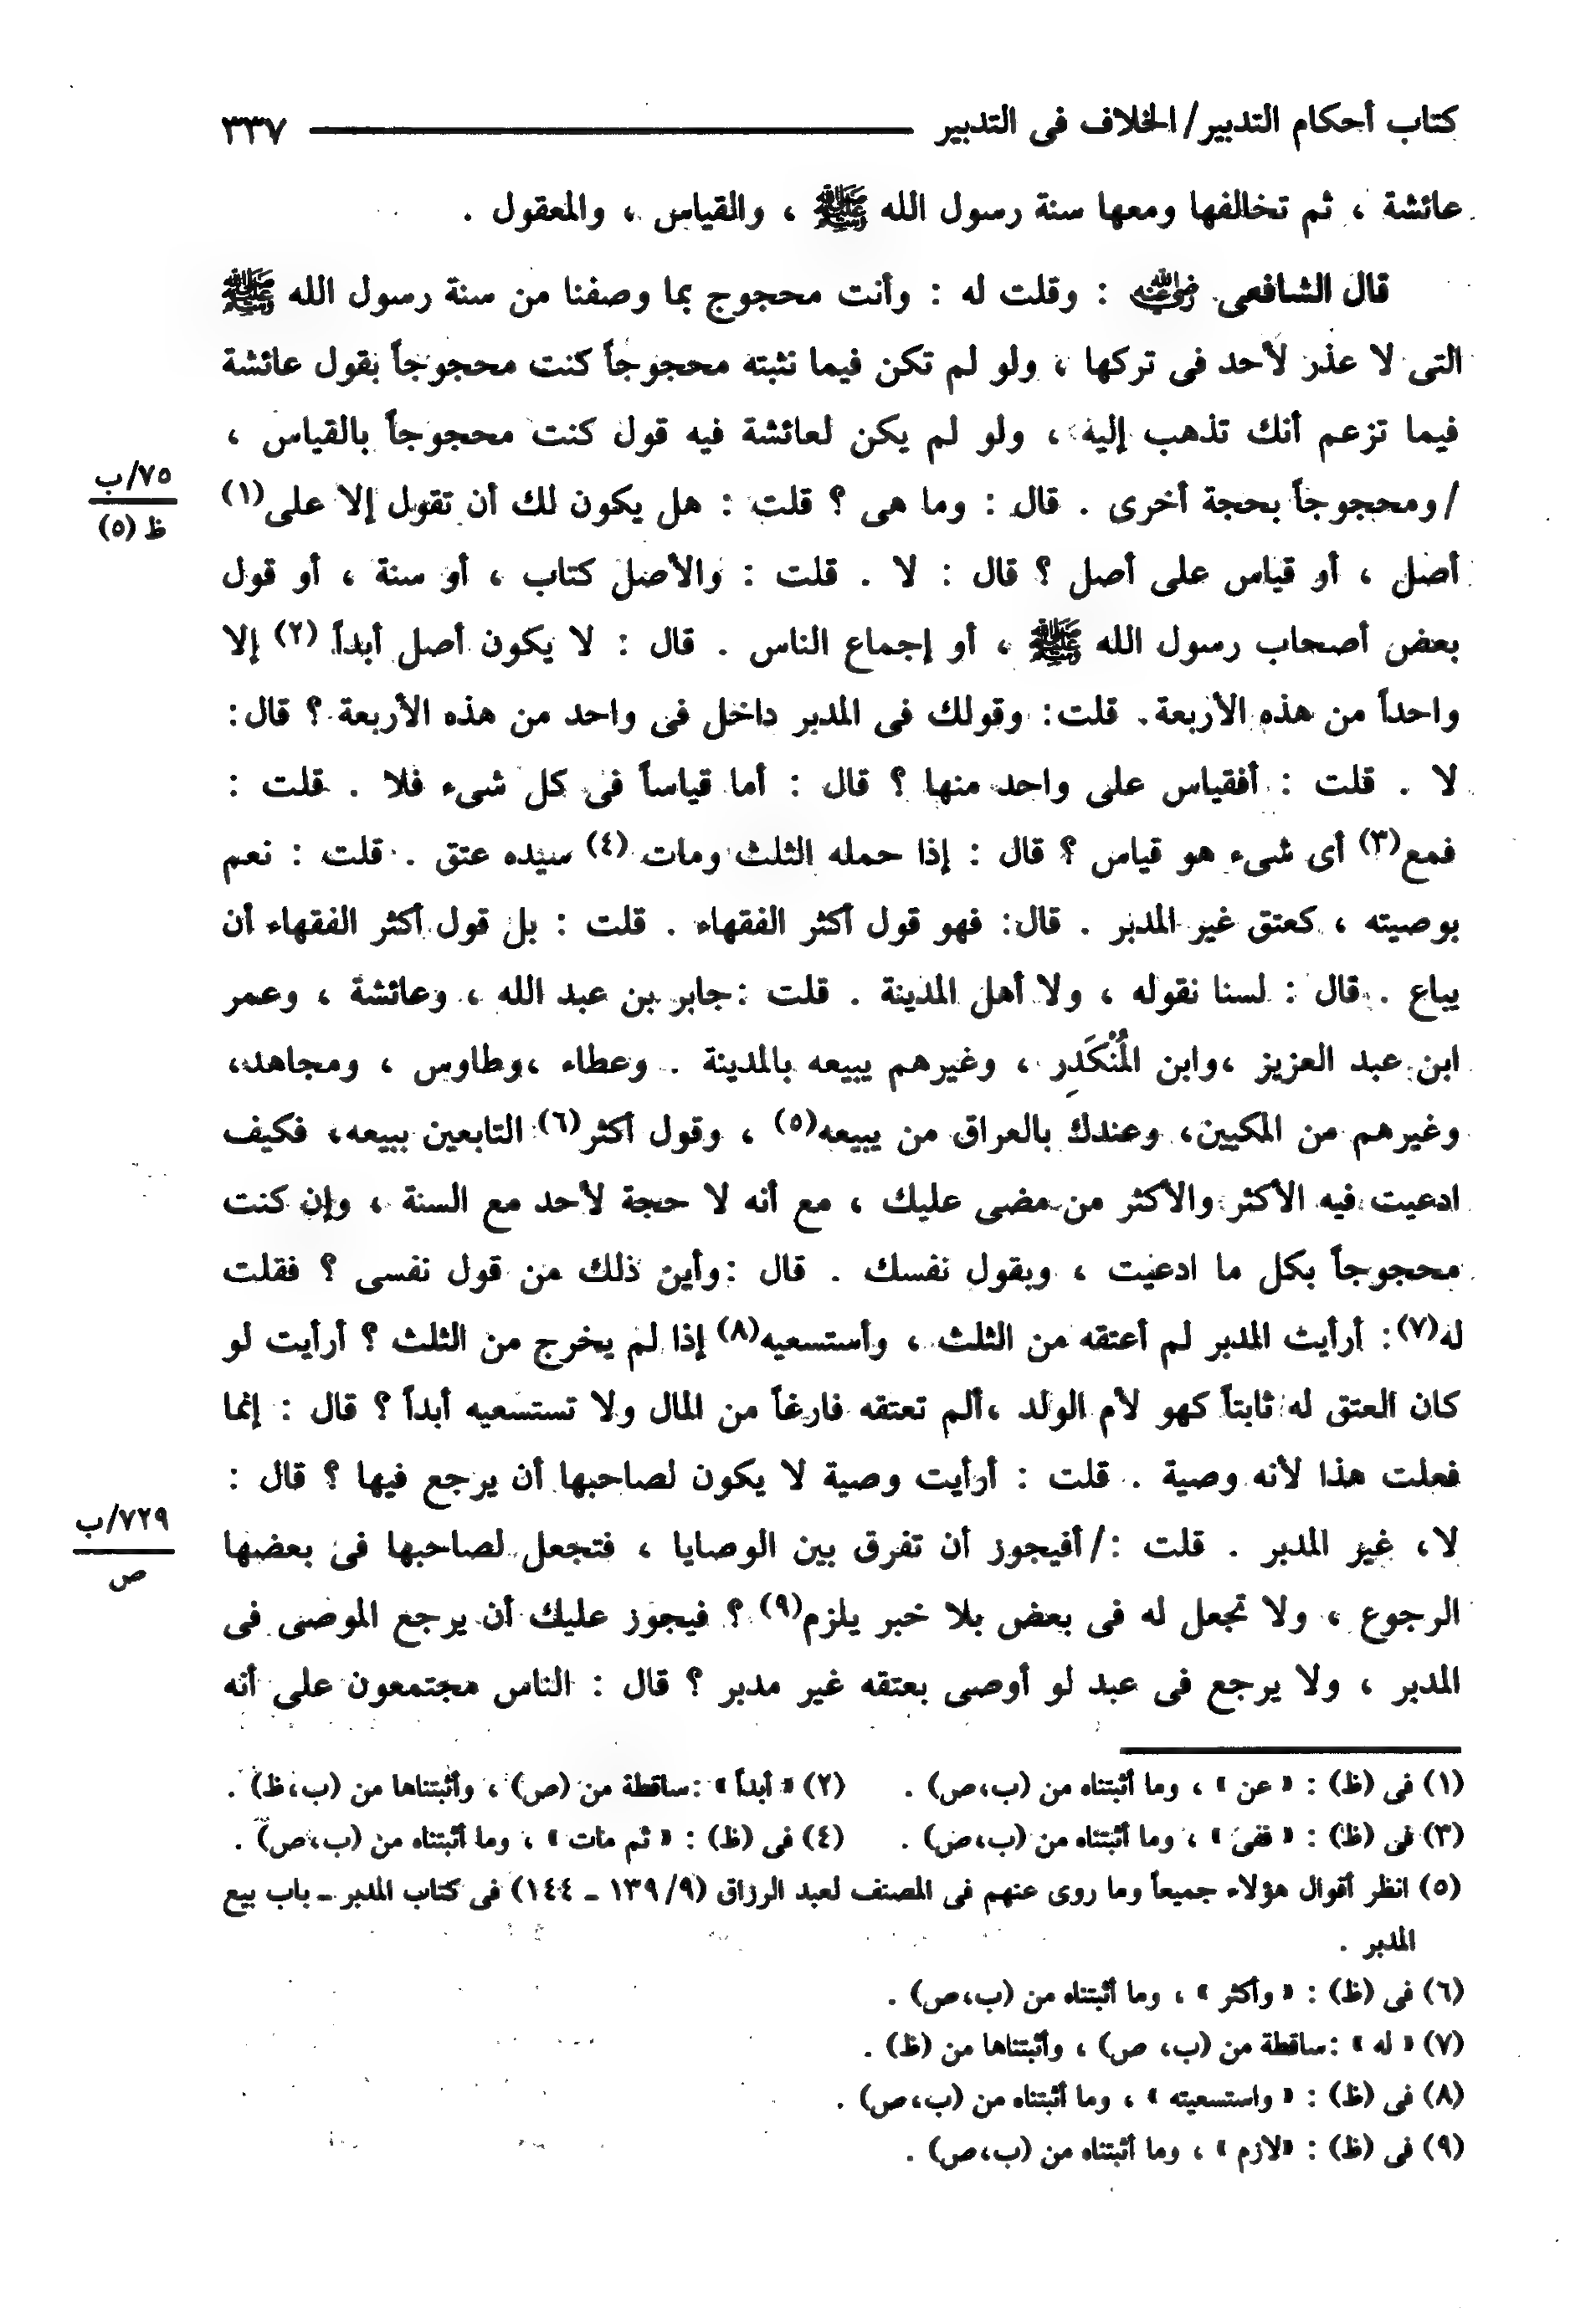 كتاب أحكام التدبير/ الخلاف فى التدبير ٣٣٧
عائشة ، ثم تخالفها ومعها سنة رسول الله ﷺ ، والقياس ، والمعقول .
قال الشافعى رضي الله عنه : وقلت له : وأنت محجوج بما وصفنا من سنة رسول الله ﷺ
التى لا عذر لأحد فى تركها ، ولو لم تكن فيما نثبته محجوجاً كنت محجوجاً بقول عائشة
فيما تزعم أنك تذهب إليه ، ولو لم يكن لعائشة فيه قول كنت محجوجاً بالقياس ،
/ ومحجوجاً بحجة أخرى . قال : وما هى ؟ قلت : هل يكون لك أن تقول إلا على(١)
٧٥/ب
ظ (٥)
أصل ، أو قياس على أصل ؟ قال : لا . قلت : والأصل كتاب ، أو سنة ، أو قول
بعض أصحاب رسول الله ﷺ ، أو إجماع الناس . قال : لا يكون أصل أبداً (٢) إلا
واحداً من هذه الأربعة. قلت: وقولك فى المدبر داخل فى واحد من هذه الأربعة ؟ قال:
لا . قلت : أفقياس على واحد منها ؟ قال : أما قياساً فى كل شىء فلا . قلت :
فمع(٣) أى شىء هو قياس ؟ قال : إذا حمله الثلث ومات (٤) سيده عتق . قلت : نعم
بوصيته ، كعتق غير المدبر . قال: فهو قول أكثر الفقهاء . قلت : بل قول أكثر الفقهاء أن
يباع . قال : لسنا نقوله ، ولا أهل المدينة . قلت :جابر بن عبد الله ، وعائشة ، وعمر
ابن عبد العزيز ،وابن المُنْكَدِر ، وغيرهم يبيعه بالمدينة . وعطاء ،وطاوس ، ومجاهد،
وغيرهم من المكيين، وعندك بالعراق من يبيعه(٥) ، وقول أكثر(٦) التابعين ببيعه، فكيف
ادعيت فيه الأكثر والأكثر من مضى عليك ، مع أنه لا حجة لأحد مع السنة ، وإن كنت
محجوجاً بكل ما ادعيت ، وبقول نفسك . قال :وأين ذلك من قول نفسى ؟ فقلت
له(٧): أرأيت المدبر لم أعتقه من الثلث ، وأستسعيه(٨) إذا لم يخرج من الثلث ؟ أرأيت لو
كان العتق له ثابتاً كهو لأم الولد ،ألم تعتقه فارغاً من المال ولا تستسعيه أبداً ؟ قال : إنما
فعلت هذا لأنه وصية . قلت : أرأيت وصية لا يكون لصاحبها أن يرجع فيها ؟ قال :
لا، غير المدبر . قلت :/ أفيجوز أن تفرق بين الوصايا ، فتجعل لصاحبها فى بعضها
٧٢٩/ب
ص
الرجوع ، ولا تجعل له فى بعض بلا خبر يلزم(٩) ؟ فيجوز عليك أن يرجع الموصى فى
المدبر ، ولا يرجع فى عبد لو أوصى بعتقه غير مدبر ؟ قال : الناس مجتمعون على أنه
(١) فى (ظ) : « عن » ، وما أثبتناه من (ب،ص) . (٢) « أبداً » :ساقطة من (ص) ، وأثبتناها من (ب،ظ) .
(٣) فى (ظ) : « ففى » ، وما أثبتناه من (ب،ص) . (٤) فى (ظ) : « ثم مات » ، وما أثبتناه من (ب،ص) .
(٥) انظر أقوال هؤلاء جميعاً وما روى عنهم فى المصنف لعبد الرزاق (٩/ ١٣٩ ـ ١٤٤) فى كتاب المدبر ـ باب بيع
المدبر .
(٦) فى (ظ) : « وأكثر » ، وما أثبتناه من (ب،ص) .
(٧) « له » :ساقطة من (ب، ص) ، وأثبتناها من (ظ) .
(٨) فى (ظ) : « واستسعيته » ، وما أثبتناه من (ب،ص) .
(٩) فى (ظ) : «لازم » ، وما أثبتناه من (ب،ص) .